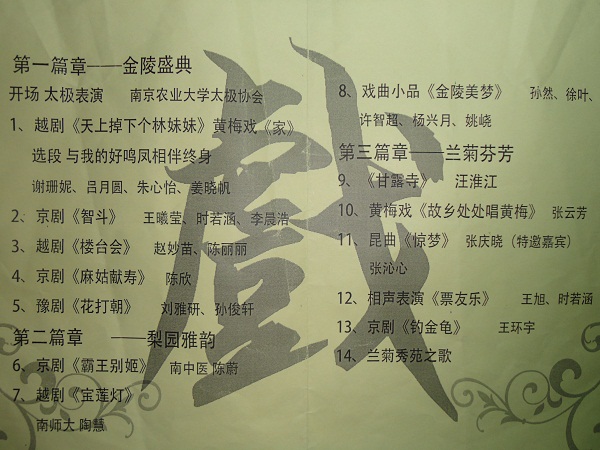 第一篇章——金陵盛典
开场 太极表演 南京农业大学太极协会
1、越剧《天上掉下个林妹妹》黄梅戏《家》
选段 与我的好鸣凤相伴终身
谢珊妮、吕月圆、朱心怡、姜晓帆
2、京剧《智斗》 王曦莹、时若涵、李晨浩
3、越剧《楼台会》 赵妙苗、陈丽丽
4、京剧《麻姑献寿》 陈欣
5、豫剧《花打朝》 刘雅研、孙俊轩
第二篇章 ——梨园雅韵
6、京剧《霸王别姬》 南中医 陈蔚
7、越剧《宝莲灯》
南师大 陶慧
8、戏曲小品《金陵美梦》 孙然、徐叶、
许智超、杨兴月、姚峣
第三篇章——兰菊芬芳
9、《甘露寺》 汪淮江
10、黄梅戏《故乡处处唱黄梅》 张云芳
11、昆曲《惊梦》 张庆晓（特邀嘉宾）
张沁心
12、相声表演《票友乐》 王旭、时若涵
13、京剧《钓金龟》 王环宇
14、兰菊秀苑之歌
戲